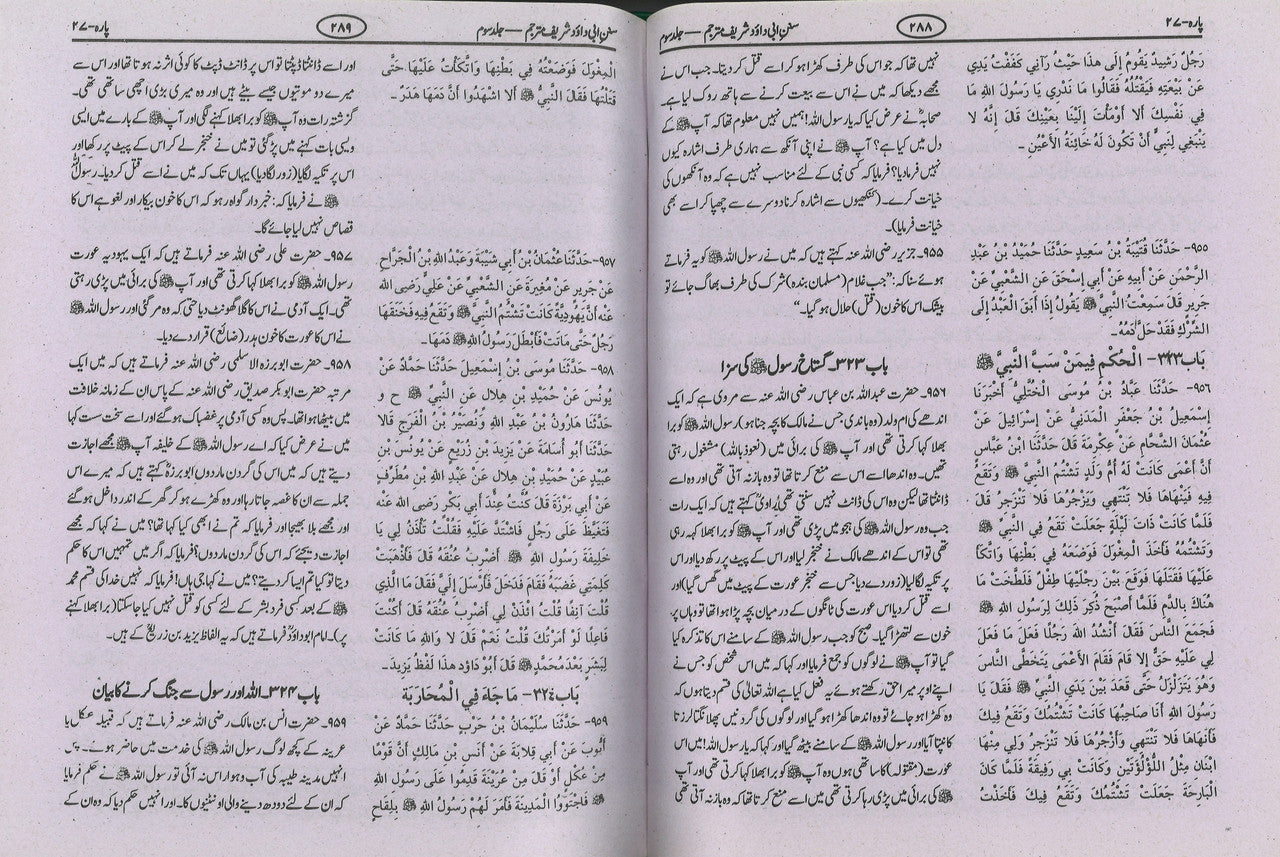 پارہ-۲۷
۲۸۸
سنن ابی داؤد شریف مترجم — جلد سوم
رَجُلٌ رَشِيدٌ يَقُومُ إِلَى هَذَا حَيْثُ رَآنِي كَفَفْتُ يَدِي
عَنْ بَيْعَتِهِ فَيَقْتُلُهُ فَقَالُوا مَا نَدْرِي يَا رَسُولَ اللهِ مَا
فِي نَفْسِكَ أَلا أَوْمَأْتَ إِلَيْنَا بِعَيْنِكَ قَالَ إِنَّهُ لا
يَنْبَغِي لِنَبِيٍّ أَنْ تَكُونَ لَهُ خَائِنَةُ الأَعْيُنِ ۔
۹۵۵- حَدَّثَنَا قُتَيْبَةُ بْنُ سَعِيدٍ حَدَّثَنَا حُمَيْدُ بْنُ عَبْدِ
الرَّحْمَنِ عَنْ أَبِيهِ عَنْ أَبِي إِسْحَقَ عَنِ الشَّعْبِيِّ عَنْ
جَرِيرٍ قَالَ سَمِعْتُ النَّبِيَّ ﷺ يَقُولُ إِذَا أَبَقَ الْعَبْدُ إِلَى
الشِّرْكِ فَقَدْ حَلَّ دَمُهُ۔
باب ۳۲۳- الْحُكْمِ فِيمَنْ سَبَّ النَّبِيَّ ﷺ
۹۵۶- حَدَّثَنَا عَبَّادُ بْنُ مُوسَى الْخُتَّلِيُّ أَخْبَرَنَا
إِسْمَعِيلُ بْنُ جَعْفَرٍ الْمَدَنِيُّ عَنْ إِسْرَائِيلَ عَنْ
عُثْمَانَ الشَّحَّامِ عَنْ عِكْرِمَةَ قَالَ حَدَّثَنَا ابْنُ عَبَّاسٍ
أَنَّ أَعْمَى كَانَتْ لَهُ أُمُّ وَلَدٍ تَشْتُمُ النَّبِيَّ ﷺ وَتَقَعُ
فِيهِ فَيَنْهَاهَا فَلا تَنْتَهِي وَيَزْجُرُهَا فَلا تَنْزَجِرُ قَالَ
فَلَمَّا كَانَتْ ذَاتَ لَيْلَةٍ جَعَلَتْ تَقَعُ فِي النَّبِيِّ ﷺ
وَتَشْتُمُهُ فَأَخَذَ الْمِغْوَلَ فَوَضَعَهُ فِي بَطْنِهَا وَاتَّكَأَ
عَلَيْهَا فَقَتَلَهَا فَوَقَعَ بَيْنَ رِجْلَيْهَا طِفْلٌ فَلَطَّخَتْ مَا
هُنَاكَ بِالدَّمِ فَلَمَّا أَصْبَحَ ذُكِرَ ذَلِكَ لِرَسُولِ اللهِ ﷺ
فَجَمَعَ النَّاسَ فَقَالَ أَنْشُدُ اللهَ رَجُلًا فَعَلَ مَا فَعَلَ
لِي عَلَيْهِ حَقٌّ إِلا قَامَ فَقَامَ الأَعْمَى يَتَخَطَّى النَّاسَ
وَهُوَ يَتَزَلْزَلُ حَتَّى قَعَدَ بَيْنَ يَدَيِ النَّبِيِّ ﷺ فَقَالَ يَا
رَسُولَ اللهِ أَنَا صَاحِبُهَا كَانَتْ تَشْتُمُكَ وَتَقَعُ فِيكَ
فَأَنْهَاهَا فَلا تَنْتَهِي وَأَزْجُرُهَا فَلا تَنْزَجِرُ وَلِي مِنْهَا
ابْنَانِ مِثْلُ اللُّؤْلُؤَتَيْنِ وَكَانَتْ بِي رَفِيقَةً فَلَمَّا كَانَ
الْبَارِحَةَ جَعَلَتْ تَشْتُمُكَ وَتَقَعُ فِيكَ فَأَخَذْتُ
نہیں تھا کہ جو اس کی طرف کھڑا ہو کر اسے قتل کر دیتا۔ جب اس نے
مجھے دیکھا کہ میں نے اس سے بیعت کرنے سے ہاتھ روک لیا ہے۔
صحابہؓ نے عرض کیا کہ یا رسول اللہ! ہمیں نہیں معلوم تھا کہ آپ ﷺ کے
دل میں کیا ہے؟ آپ ﷺ نے اپنی آنکھ سے ہماری طرف اشارہ کیوں
نہیں فرما دیا؟ فرمایا کہ کسی نبی کے لئے مناسب نہیں ہے کہ وہ آنکھوں کی
خیانت کرے۔ (کنکھیوں سے اشارہ کرنا دوسرے سے چھپا کر اسے بھی
خیانت فرمایا)۔
۹۵۵۔ جریر رضی اللہ عنہ کہتے ہیں کہ میں نے رسول اللہ ﷺ کو یہ فرماتے
ہوئے سنا کہ: ”جب غلام (مسلمان بندہ) شرک کی طرف بھاگ جائے تو
بیشک اس کا خون (قتل) حلال ہو گیا۔“
باب ۳۲۳۔ گستاخ رسول ﷺ کی سزا
۹۵۶۔ حضرت عبداللہ بن عباس رضی اللہ عنہ سے مروی ہے کہ ایک
اندھے کی ام ولد (وہ باندی جس نے مالک کا بچہ جنا ہو) رسول اللہ ﷺ کو برا
بھلا کہا کرتی تھی اور آپ ﷺ کی برائی میں (نعوذ باللہ) مشغول رہتی
تھیں۔ وہ اندھا اسے اس سے منع کرتا تھا تو وہ باز نہ آتی تھی اور وہ اسے
ڈانٹتا تھا لیکن وہ اس کی ڈانٹ نہیں سنتی تھی راوی کہتے ہیں کہ ایک رات
جب وہ رسول اللہ ﷺ کی ہجو میں پڑی تھی اور آپ ﷺ کو برا بھلا کہہ رہی
تھی تو اس کے اندھے مالک نے خنجر لیا اور اس کے پیٹ پر رکھ دیا اور اس
پر تکیہ لگا لیا (زور دے دیا جس سے خنجر عورت کے پیٹ میں گھس گیا) اور
اسے قتل کر دیا اس عورت کی ٹانگوں کے درمیان بچہ پڑا ہوا تھا تو وہاں پر
خون سے لتھڑا گیا۔ صبح کو جب رسول اللہ ﷺ کے سامنے اس کا تذکرہ کیا
گیا تو آپ ﷺ نے لوگوں کو جمع فرمایا اور کہا کہ میں اس شخص کو جس نے
اپنے اوپر میرا حق رکھتے ہوئے یہ فعل کیا ہے اللہ تعالیٰ کی قسم دیتا ہوں کہ
وہ کھڑا ہو جائے تو وہ اندھا کھڑا ہو گیا اور لوگوں کی گردنیں پھلانگتا لرزتا
کانپتا آیا اور رسول اللہ ﷺ کے سامنے بیٹھ گیا اور کہا کہ یا رسول اللہ! میں اس
عورت (مقتولہ) کا ساتھی ہوں وہ آپ ﷺ کو برا بھلا کہا کرتی تھی اور آپ
ﷺ کی برائی میں پڑی رہا کرتی تھی میں اسے منع کرتا تھا کہ وہ باز نہ آتی تھی
سنن ابی داؤد شریف مترجم — جلد سوم
۲۸۹
پارہ-۲۷
الْمِغْوَلَ فَوَضَعْتُهُ فِي بَطْنِهَا وَاتَّكَأْتُ عَلَيْهَا حَتَّى
قَتَلْتُهَا فَقَالَ النَّبِيُّ ﷺ أَلا اشْهَدُوا أَنَّ دَمَهَا هَدَرٌ۔
۹۵۷- حَدَّثَنَا عُثْمَانُ بْنُ أَبِي شَيْبَةَ وَعَبْدُ اللهِ بْنُ الْجَرَّاحِ
عَنْ جَرِيرٍ عَنْ مُغِيرَةَ عَنِ الشَّعْبِيِّ عَنْ عَلِيٍّ رَضِي الله
عَنْه أَنَّ يَهُودِيَّةً كَانَتْ تَشْتُمُ النَّبِيَّ ﷺ وَتَقَعُ فِيهِ فَخَنَقَهَا
رَجُلٌ حَتَّى مَاتَتْ فَأَبْطَلَ رَسُولُ اللهِ ﷺ دَمَهَا۔
۹۵۸- حَدَّثَنَا مُوسَى بْنُ إِسْمَعِيلَ حَدَّثَنَا حَمَّادٌ عَنْ
يُونُسَ عَنْ حُمَيْدِ بْنِ هِلالٍ عَنِ النَّبِيِّ ﷺ ح و
حَدَّثَنَا هَارُونُ بْنُ عَبْدِ اللهِ وَنُصَيْرُ بْنُ الْفَرَجِ قَالا
حَدَّثَنَا أَبُو أُسَامَةَ عَنْ يَزِيدَ بْنِ زُرَيْعٍ عَنْ يُونُسَ بْنِ
عُبَيْدٍ عَنْ حُمَيْدِ بْنِ هِلالٍ عَنْ عَبْدِ اللهِ بْنِ مُطَرِّفٍ
عَنْ أَبِي بَرْزَةَ قَالَ كُنْتُ عِنْدَ أَبِي بَكْرٍ رَضِي الله عَنْه
فَتَغَيَّظَ عَلَى رَجُلٍ فَاشْتَدَّ عَلَيْهِ فَقُلْتُ تَأْذَنُ لِي يَا
خَلِيفَةَ رَسُولِ اللهِ ﷺ أَضْرِبُ عُنُقَهُ قَالَ فَأَذْهَبَتْ
كَلِمَتِي غَضَبَهُ فَقَامَ فَدَخَلَ فَأَرْسَلَ إِلَيَّ فَقَالَ مَا الَّذِي
قُلْتَ آنِفًا قُلْتُ ائْذَنْ لِي أَضْرِبُ عُنُقَهُ قَالَ أَكُنْتَ
فَاعِلًا لَوْ أَمَرْتُكَ قُلْتُ نَعَمْ قَالَ لا وَاللهِ مَا كَانَتْ
لِبَشَرٍ بَعْدَ مُحَمَّدٍ ﷺ قَالَ أَبُو دَاوُد هَذَا لَفْظُ يَزِيدَ۔
باب ۳۲٤- مَا جَاءَ فِي الْمُحَارَبَة
۹۵۹- حَدَّثَنَا سُلَيْمَانُ بْنُ حَرْبٍ حَدَّثَنَا حَمَّادٌ عَنْ
أَيُّوبَ عَنْ أَبِي قِلابَةَ عَنْ أَنَسِ بْنِ مَالِكٍ أَنَّ قَوْمًا
مِنْ عُكْلٍ أَوْ قَالَ مِنْ عُرَيْنَةَ قَدِمُوا عَلَى رَسُولِ اللهِ
ﷺ فَاجْتَوَوُا الْمَدِينَةَ فَأَمَرَ لَهُمْ رَسُولُ اللهِ ﷺ بِلِقَاحٍ
اور اسے ڈانٹتا ڈپٹتا تو اس پر ڈانٹ ڈپٹ کا کوئی اثر نہ ہوتا تھا اور اس سے
میرے دو موتیوں جیسے بیٹے ہیں اور وہ میری بڑی اچھی ساتھی تھی۔
گزشتہ رات وہ آپ ﷺ کو برا بھلا کہنے لگی اور آپ ﷺ کے بارے میں ایسی
ویسی بات کہنے میں پڑ گئی تو میں نے خنجر لے کر اس کے پیٹ پر رکھا اور
اس پر تکیہ لگا لیا (زور لگا دیا) یہاں تک کہ میں نے اسے قتل کر دیا۔ رسول اللہ
ﷺ نے فرمایا کہ: خبردار گواہ رہو کہ اس کا خون بیکار اور لغو ہے اس کا
قصاص نہیں لیا جائے گا۔
۹۵۷۔ حضرت علی رضی اللہ عنہ فرماتے ہیں کہ ایک یہودیہ عورت
رسول اللہ ﷺ کو برا بھلا کہا کرتی تھی اور آپ ﷺ کی برائی میں پڑی رہتی
تھی۔ ایک آدمی نے اس کا گلا گھونٹ دیا حتی کہ وہ مر گئی اور رسول اللہ ﷺ
نے اس کا عورت کا خون ہدر (ضائع) قرار دے دیا۔
۹۵۸۔ حضرت ابو برزہ الاسلمی رضی اللہ عنہ فرماتے ہیں کہ میں ایک
مرتبہ حضرت ابوبکر صدیق رضی اللہ عنہ کے پاس ان کے زمانہ خلافت
میں بیٹھا ہوا تھا۔ پس وہ کسی آدمی پر غضبناک ہو گئے اور اسے سخت ست کہا
میں نے عرض کیا کہ اے رسول اللہ کے خلیفہ آپ ﷺ مجھے اجازت
دیتے ہیں کہ میں اس کی گردن ماردوں؟ ابو برزہ کہتے ہیں کہ میرے اس
جملہ سے ان کا غصہ جاتا رہا اور وہ کھڑے ہو کر گھر کے اندر داخل ہو گئے
اور مجھے بلا بھیجا اور فرمایا کہ تم نے ابھی کیا کہا تھا؟ میں نے کہا کہ مجھے
اجازت دیجئے کہ اس کی گردن ماردوں؟ فرمایا کہ اگر میں تمہیں اس کا حکم
دیتا تو کیا تم ایسا کر دیتے؟ میں نے کہا جی ہاں! فرمایا کہ نہیں خدا کی قسم محمد
ﷺ کے بعد کسی فرد بشر کے لئے کسی کو قتل نہیں کیا جا سکتا (برا بھلا کہنے
پر)۔ امام ابو داؤد فرماتے ہیں کہ یہ الفاظ یزید بن زریع کے ہیں۔
باب ۳۲۴۔ اللہ اور رسول سے جنگ کرنے کا بیان
۹۵۹۔ حضرت انس بن مالک رضی اللہ عنہ فرماتے ہیں کہ قبیلہ عکل یا
عرینہ کے کچھ لوگ رسول اللہ ﷺ کی خدمت میں حاضر ہوئے۔ پس
انہیں مدینہ طیبہ کی آب و ہوا راس نہ آئی تو رسول اللہ ﷺ نے حکم فرمایا
کہ ان کے لئے دودھ دینے والی اونٹنیوں کا۔ اور انہیں حکم دیا کہ وہ ان کے